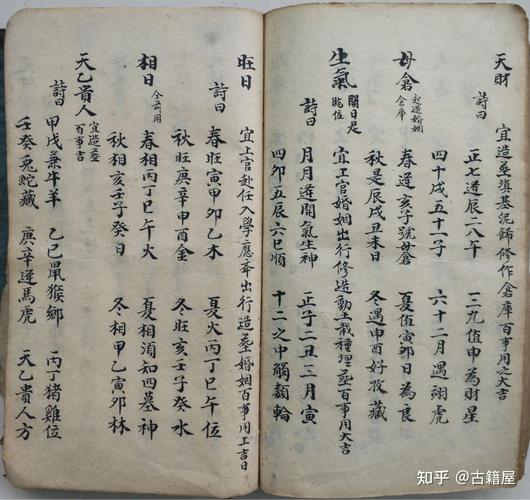 天財 宜造葬填基泥飾修作倉庫百事用之大吉
詩曰 正七逢辰二八午 三九值申為財星
四十戌五十一子 六十二月遇翊虎
母倉 起造婚姻倉庫
春逢亥子號母倉 夏值寅卯日為良
秋是辰戌丑未日 冬遇申酉好收藏
生氣 開日是臨位 宜上官婚姻出行修造動土栽種埋葬百事用大吉
詩曰 月月逢開氣生神 正子二丑三月寅
四卯五辰六巳順 十二之中觸類輪
旺日 宜上官赴任入學應奔出行造葬婚姻百事用工吉日
詩曰 春旺寅甲卯乙木 夏火丙丁巳午位
秋旺庚辛申酉金 冬旺亥壬子癸水
相日 全前用 春相丙丁巳午火 夏相須知四墓神
秋相亥壬子癸日 冬相甲乙寅卯林
天乙貴人 宜造葬百事吉
詩曰 甲戊兼牛羊 乙巳鼠猴鄉 丙丁猪雞位
壬癸兔蛇藏 庚辛逢馬虎 天乙貴人方
知乎 @古籍屋